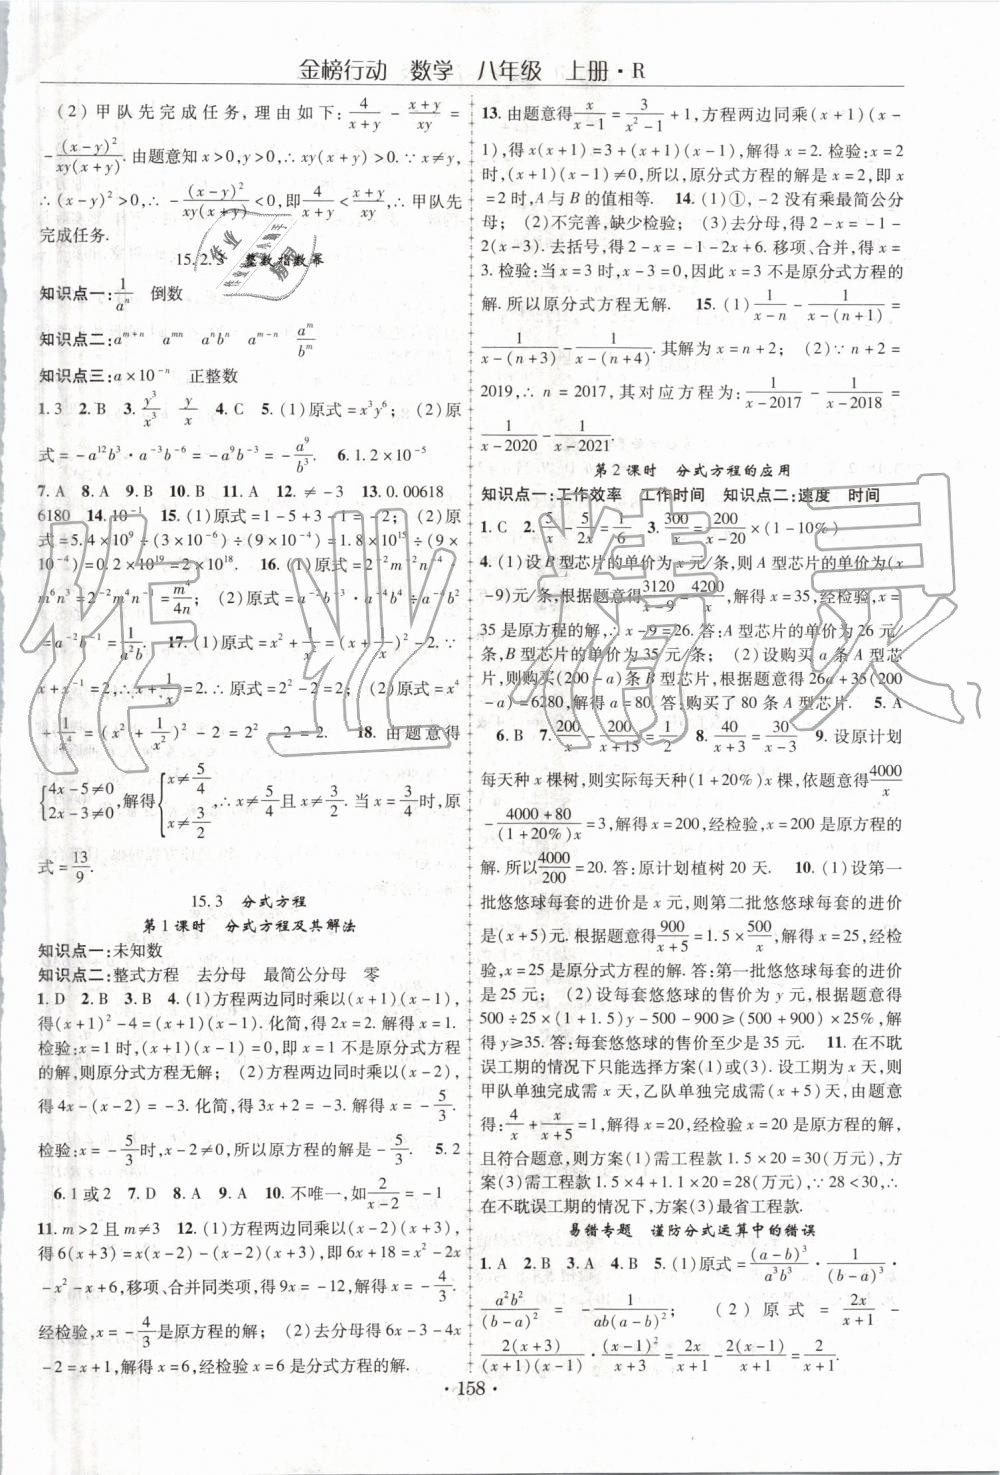 金榜行动 数学 八年级 上册·R
(2)甲队先完成任务,理由如下:4/(x+y)-(x+y)/xy=
-(x-y)²/xy(x+y).由题意知x>0,y>0,∴xy(x+y)>0.∵x≠y,
∴(x-y)²>0,∴-(x-y)²/xy(x+y)<0,即4/(x+y)<(x+y)/xy,∴甲队先
完成任务.
15.2.3 整数指数幂
知识点一:1/aⁿ 倒数
知识点二:aᵐ⁺ⁿ aᵐⁿ aⁿbⁿ aᵐ⁻ⁿ aᵐ/bᵐ
知识点三:a×10⁻ⁿ 正整数
1.3 2.B 3.y³/x³ y/x 4.C 5.(1)原式=x³y⁶; (2)原
式=-a¹²b³·a⁻³b⁻⁶=-a⁹/b³. 6.1.2×10⁻⁵
7.A 8.A 9.B 10.B 11.A 12.≠-3 13.0.00618
6180 14.10⁻¹ 15.(1)原式=1-5+3-1=-2; (2)原
式=5.4×10⁹÷(3×10⁻⁶)÷(9×10⁻⁴)=1.8×10¹⁵÷(9×
10⁻⁴)=0.2×10¹⁹=2×10¹⁸. 16.(1)原式=2⁻²m⁻²n⁻⁴·
m⁶n³=2⁻²m⁴n⁻¹=m⁴/4n; (2)原式=a⁻⁶b⁻³·a⁻⁴b⁴÷a⁻⁶b²
=a⁻²b⁻¹=1/a²b. 17.(1)原式=x²+1/x²=(x+1/x)²-2.∵
x+x⁻¹=2,∴x+1/x=2.∴原式=2²-2=2; (2)原式=x⁴
+1/x⁴=(x²+1/x²)²-2=2²-2=2. 18.由题意得
{4x-5≠0 2x-3≠0,解得{x≠5/4 x≠3/2,∴x≠5/4且x≠3/2.当x=3/4时,原
式=13/9.
15.3 分式方程
第1课时 分式方程及其解法
知识点一:未知数
知识点二:整式方程 去分母 最简公分母 零
1.D 2.B 3.B 4.(1)方程两边同时乘以(x+1)(x-1),
得(x+1)²-4=(x+1)(x-1).化简,得2x=2.解得x=1.
检验:x=1时,(x+1)(x-1)=0,即x=1不是原分式方程
的解,则原分式方程无解; (2)方程两边同时乘以(x-2),
得4x-(x-2)=-3.化简,得3x=-5.解得x=-5/3.
检验:x=-5/3时,x-2≠0,所以原方程的解是-5/3. 5.2
6.1或2 7.D 8.A 9.A 10.不唯一,如2/(x-2)=-1
11.m>2且m≠3 12.(1)方程两边同乘以(x-2)(x+3),
得6(x+3)=x(x-2)-(x-2)(x+3),即6x+18=x²-2x
-x²-x+6,移项、合并同类项,得9x=-12,解得x=-4/3.
经检验,x=-4/3是原方程的解; (2)去分母得6x-3-4x
-2=x+1,解得x=6,经检验x=6是分式方程的解.
13.由题意得x/(x-1)=3/(x²-1)+1,方程两边同乘(x+1)(x-
1),得x(x+1)=3+(x+1)(x-1),解得x=2.检验:x=2
时,(x+1)(x-1)≠0,所以,原分式方程的解是x=2,即x
=2时,A与B的值相等. 14.(1)①,-2没有乘最简公分
母; (2)不完善,缺少检验; (3)去分母,得2-x=-1-
2(x-3).去括号,得2-x=-1-2x+6.移项、合并,得x=
3.检验:当x=3时,x-3=0,因此x=3不是原分式方程的
解.所以原分式方程无解. 15.(1)1/(x-n)-1/(x-(n+1))=
1/(x-(n+3))-1/(x-(n+4)).其解为x=n+2; (2)∵n+2=
2019,∴n=2017,其对应方程为:1/(x-2017)-1/(x-2018)=
1/(x-2020)-1/(x-2021).
第2课时 分式方程的应用
知识点一:工作效率 工作时间 知识点二:速度 时间
1.C 2.5/x-5/2x=1/6 3.300/x=200/(x-20)×(1-10%)
4.(1)设B型芯片的单价为x元/条,则A型芯片的单价为(x
-9)元/条,根据题意得3120/(x-9)=4200/x,解得x=35,经检验,x=
35是原方程的解,∴x-9=26.答:A型芯片的单价为26元/
条,B型芯片的单价为35元/条; (2)设购买a条A型芯
片,则购买(200-a)条B型芯片,根据题意得26a+35(200
-a)=6280,解得a=80.答:购买了80条A型芯片. 5.A
6.B 7.200/x-200/(x+15)=1/2 8.40/(x+3)=30/(x-3) 9.设原计划
每天种x棵树,则实际每天种(1+20%)x棵,依题意得4000/x
-(4000+80)/(1+20%)x=3,解得x=200,经检验,x=200是原方程的
解.所以4000/200=20.答:原计划植树20天. 10.(1)设第一
批悠悠球每套的进价是x元,则第二批悠悠球每套的进价
是(x+5)元.根据题意得900/(x+5)=1.5×500/x,解得x=25,经检
验,x=25是原分式方程的解.答:第一批悠悠球每套的进价
是25元; (2)设每套悠悠球的售价为y元,根据题意得
500÷25×(1+1.5)y-500-900≥(500+900)×25%,解
得y≥35.答:每套悠悠球的售价至少是35元. 11.在不耽
误工期的情况下只能选择方案(1)或(3).设工期为x天,则
甲队单独完成需x天,乙队单独完成需(x+5)天,由题意
得:4/x+x/(x+5)=1,解得x=20.经检验,x=20是原方程的解,
且符合题意,则方案(1)需工程款1.5×20=30(万元),方
案(3)需工程款1.5×4+1.1×20=28(万元),∵28<30,∴
在不耽误工期的情况下,方案(3)最省工程款.
易错专题 谨防分式运算中的错误
1.A 2.B 3.A 4.B 5.(1)原式=(a-b)³/a³b³·1/(b-a)³·
a²b²/(b-a)²=-1/ab(a-b)²; (2)原式=2x/(x+1)-
2(x+3)/(x+1)(x-1)·(x-1)²/(x+3)=2x/(x+1)-2(x-1)/(x+1)=2/(x+1).
·158·
作业精灵